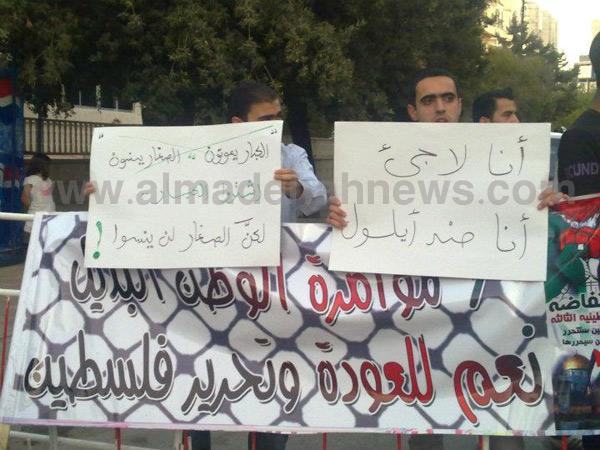 "الكبار يموتون" "الصغار ينسون"
لكنَّ الصغار لن ينسوا !
أنا لاجئ
أنا ضد أيلول
www.almadenahnews.com
مؤامرة الوطن البديل
نعم للعودة وتحرير فلسطين
الثالثة
ستتحرر
سيحررها